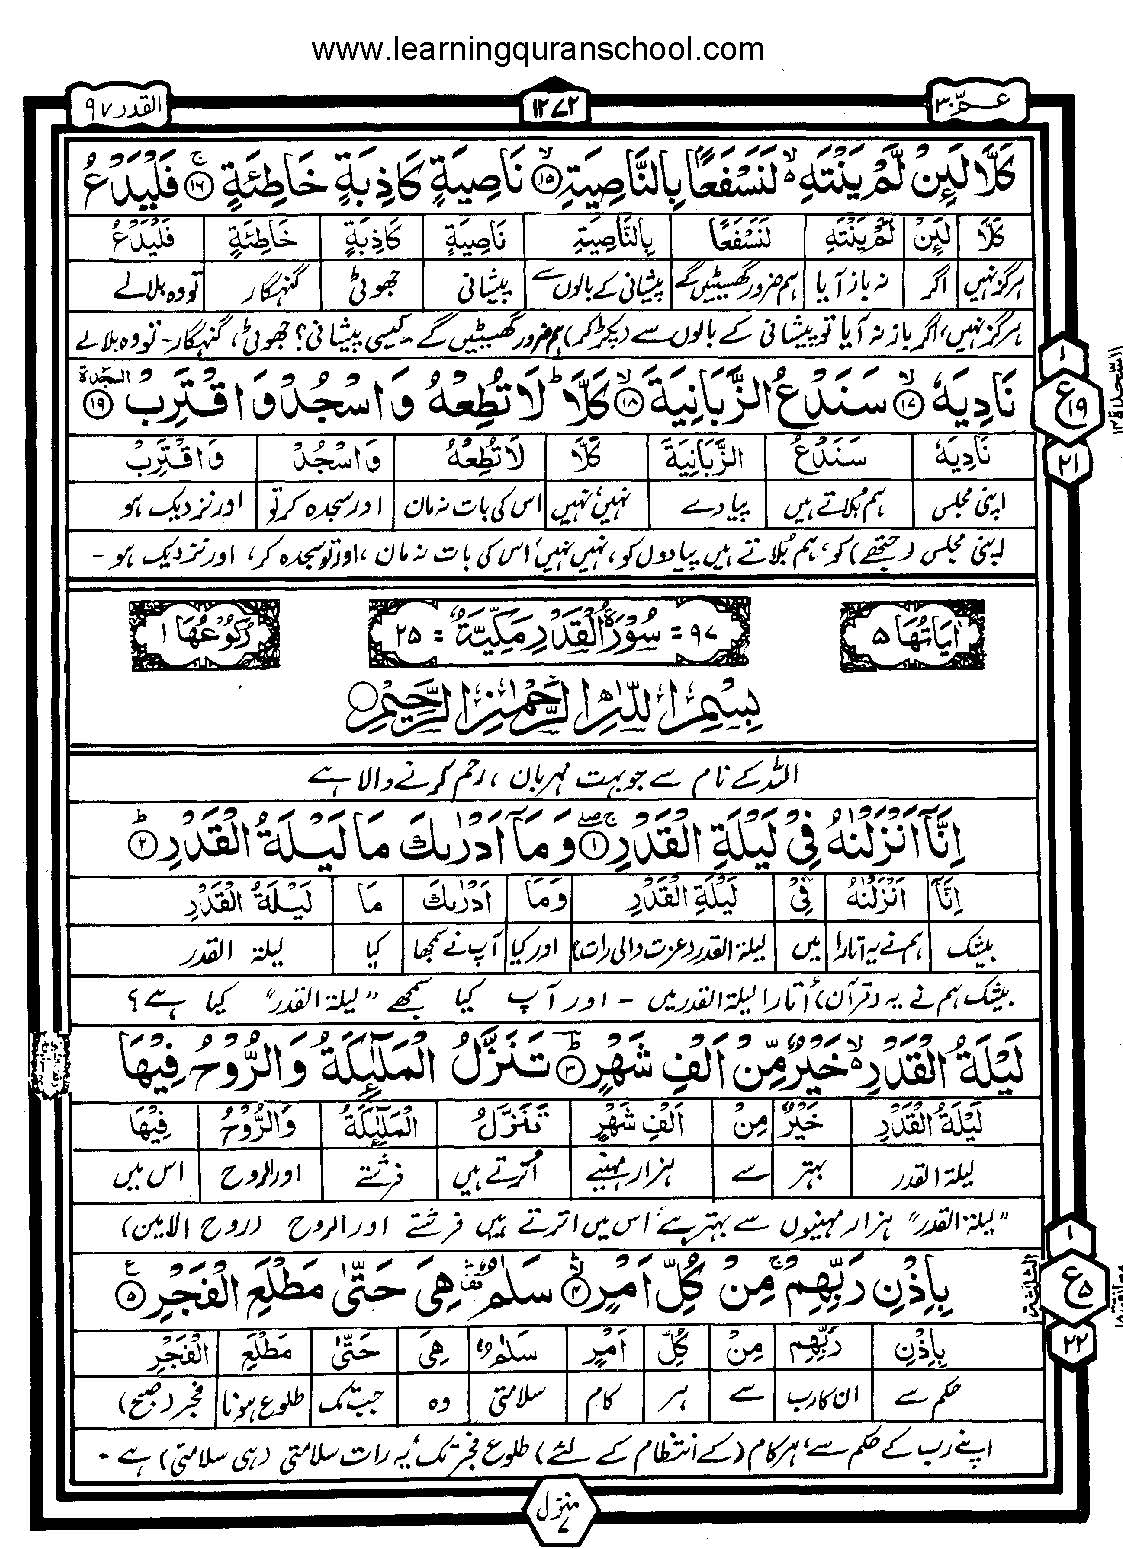 www.learningquranschool.com
عـمّ ٣٠
١٢٧٢
القدر ٩٧
كَلَّا لَئِنْ لَّمْ يَنْتَهِ ۙ لَنَسْفَعًۢا بِالنَّاصِيَةِ ۙ ١٥ نَاصِيَةٍ كَاذِبَةٍ خَاطِئَةٍ ۚ ١٦ فَلْيَدْعُ
كَلَّا لَئِنْ لَّمْ يَنْتَهِ لَنَسْفَعًا بِالنَّاصِيَةِ نَاصِيَةٍ كَاذِبَةٍ خَاطِئَةٍ فَلْيَدْعُ
ہرگز نہیں اگر نہ باز آیا ہم ضرور گھسیٹیں گے پیشانی کے بالوں سے پیشانی جھوٹی گنہگار تو وہ بلالے
ہرگز نہیں، اگر باز نہ آیا تو پیشانی کے بالوں سے (پکڑ کر) ہم ضرور گھسیٹیں گے - کیسی پیشانی؟ جھوٹی، گنہگار - تو وہ بلالے
نَادِيَهٗ ۙ ١٧ سَنَدْعُ الزَّبَانِيَةَ ۙ ١٨ كَلَّا ؕ لَا تُطِعْهُ وَاسْجُدْ وَاقْتَرِبْ ١٩ السجدة
نَادِيَهٗ سَنَدْعُ الزَّبَانِيَةَ كَلَّا لَا تُطِعْهُ وَاسْجُدْ وَاقْتَرِبْ
اپنی مجلس ہم بلاتے ہیں پیادے نہیں نہیں اس کی بات نہ مان اور سجدہ کر تو اور نزدیک ہو
اپنی مجلس (جتھے) کو، ہم بُلاتے ہیں پیادوں کو، نہیں نہیں اُس کی بات نہ مان، اور تو سجدہ کر، اور نزدیک ہو -
١
ع ١٩
٢١
اٰيَاتُهَا ٥
٩٧ = سُوْرَةُ الْقَدْرِ مَكِّيَّةٌ = ٢٥
رُكُوْعُهَا ١
بِسْمِ اللّٰهِ الرَّحْمٰنِ الرَّحِيْمِ
اللہ کے نام سے جو بہت مہربان، رحم کرنے والا ہے
اِنَّآ اَنْزَلْنٰهُ فِيْ لَيْلَةِ الْقَدْرِ ١ وَمَآ اَدْرٰىكَ مَا لَيْلَةُ الْقَدْرِ ؕ ٢
اِنَّآ اَنْزَلْنٰهُ فِيْ لَيْلَةِ الْقَدْرِ وَمَآ اَدْرٰىكَ مَا لَيْلَةُ الْقَدْرِ
بیشک ہم نے یہ اتارا میں لیلۃ القدر (عزت والی رات) اور کیا آپ نے سمجھا کیا لیلۃ القدر
بیشک ہم نے یہ (قرآن) اُتارا لیلۃ القدر میں - اور آپ کیا سمجھے "لیلۃ القدر" کیا ہے؟
لَيْلَةُ الْقَدْرِ ۙ خَيْرٌ مِّنْ اَلْفِ شَهْرٍ ؕ ٣ تَنَزَّلُ الْمَلٰٓئِكَةُ وَالرُّوْحُ فِيْهَا
لَيْلَةُ الْقَدْرِ خَيْرٌ مِنْ اَلْفِ شَهْرٍ تَنَزَّلُ الْمَلٰٓئِكَةُ وَالرُّوْحُ فِيْهَا
لیلۃ القدر بہتر سے ہزار مہینے اترتے ہیں فرشتے اور الروح اس میں
"لیلۃ القدر" ہزار مہینوں سے بہتر ہے، اس میں اترتے ہیں فرشتے اور الروح (روح الامین)
بِاِذْنِ رَبِّهِمْ ۚ مِنْ كُلِّ اَمْرٍ ٤ سَلٰمٌ هِيَ حَتّٰى مَطْلَعِ الْفَجْرِ ٥
بِاِذْنِ رَبِّهِمْ مِنْ كُلِّ اَمْرٍ سَلٰمٌ هِيَ حَتّٰى مَطْلَعِ الْفَجْرِ
حکم سے ان کا رب سے ہر کام سلامتی وہ جب تک طلوع ہونا فجر (صبح)
اپنے رب کے حکم سے، ہر کام (کے انتظام کے لئے) طلوع فجر تک یہ رات سلامتی (ہی سلامتی) ہے -
١
ع ٥
٢٢
منزل ٧